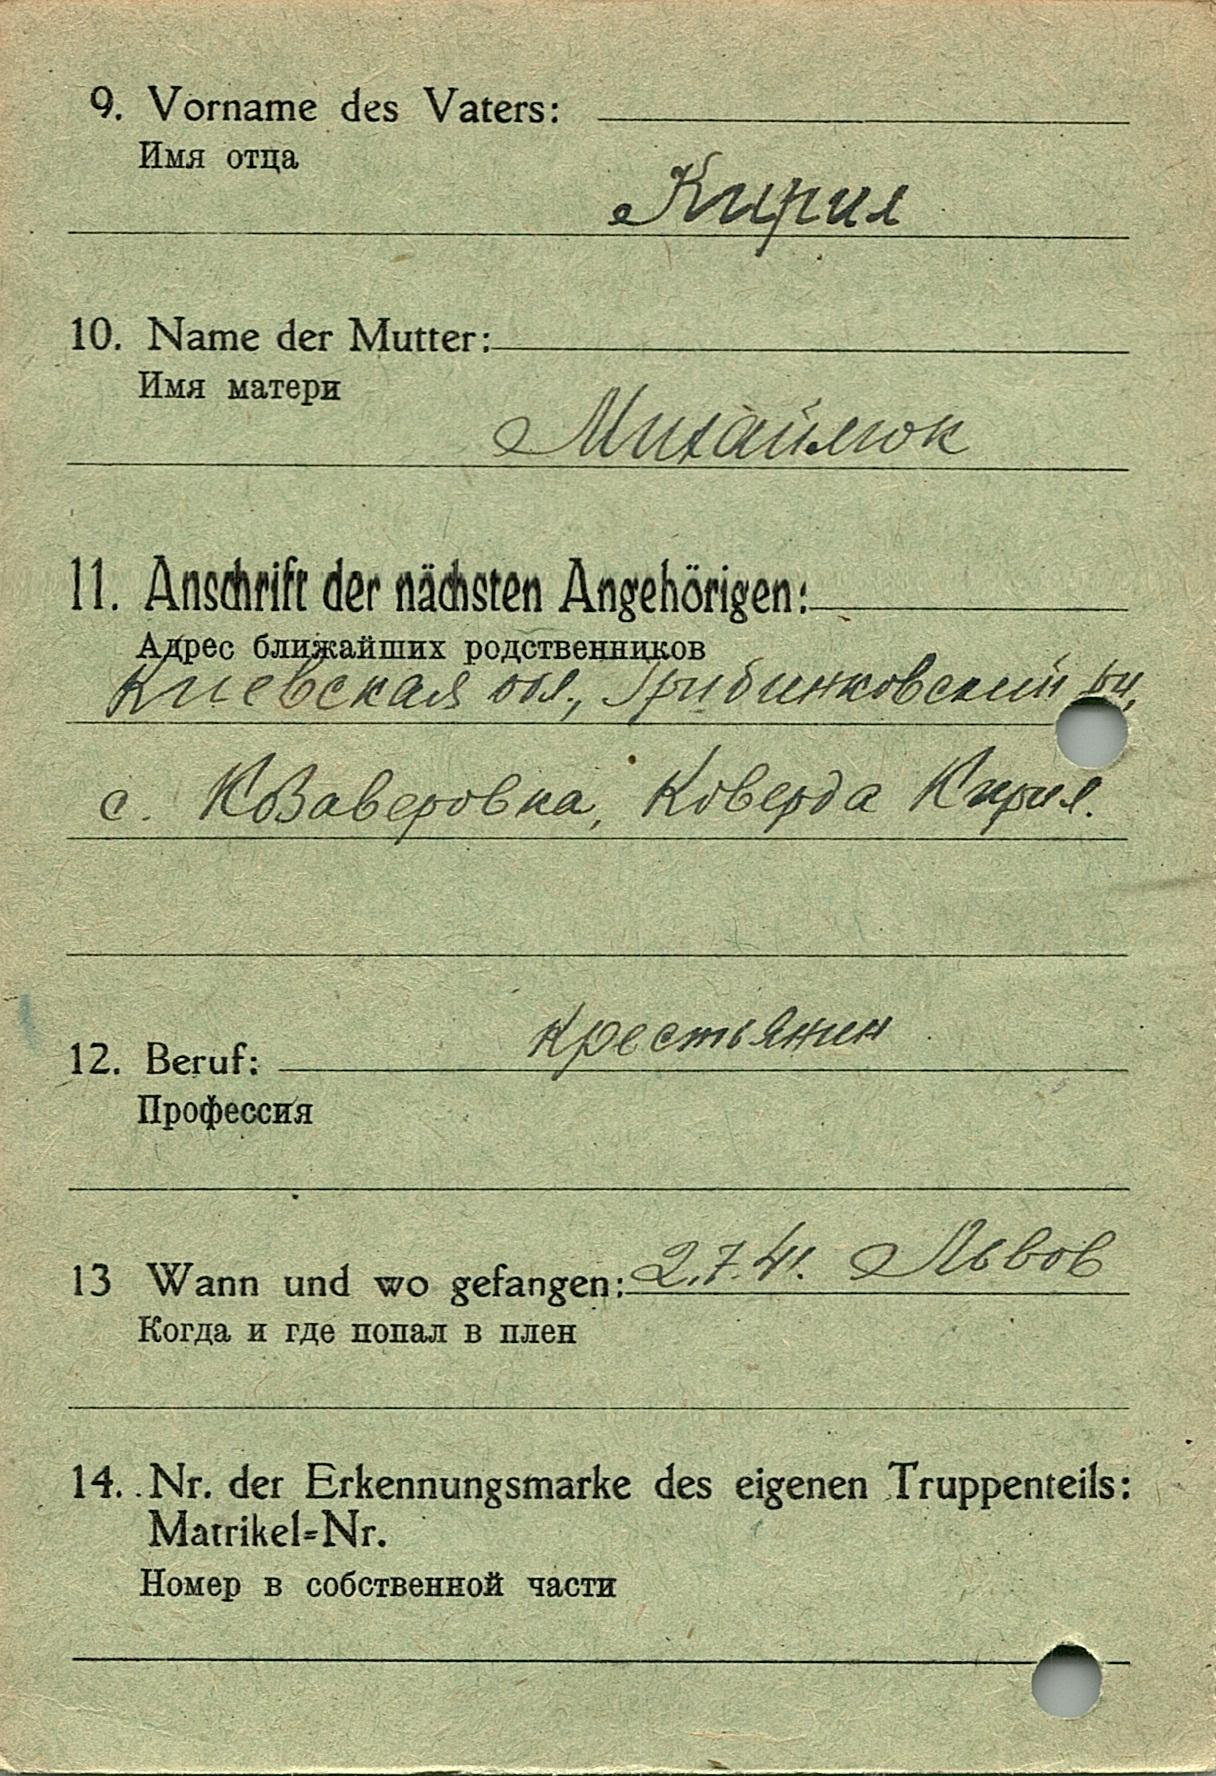 9. Vorname des Vaters:
Имя отца
Кирил
10. Name der Mutter:
Имя матери
Михайлюк
11. Anschrift der nächsten Angehörigen:
Адрес ближайших родственников
Киевская обл., Грибинковский
с. Коверда Кирил.
крестьянин
12. Beruf:
Профессия
13 Wann und wo gefangen: 2.7.41. Львов
Когда и где попал в плен
14. Nr. der Erkennungsmarke des eigenen Truppenteils:
Matrikel=Nr.
Номер в собственной части